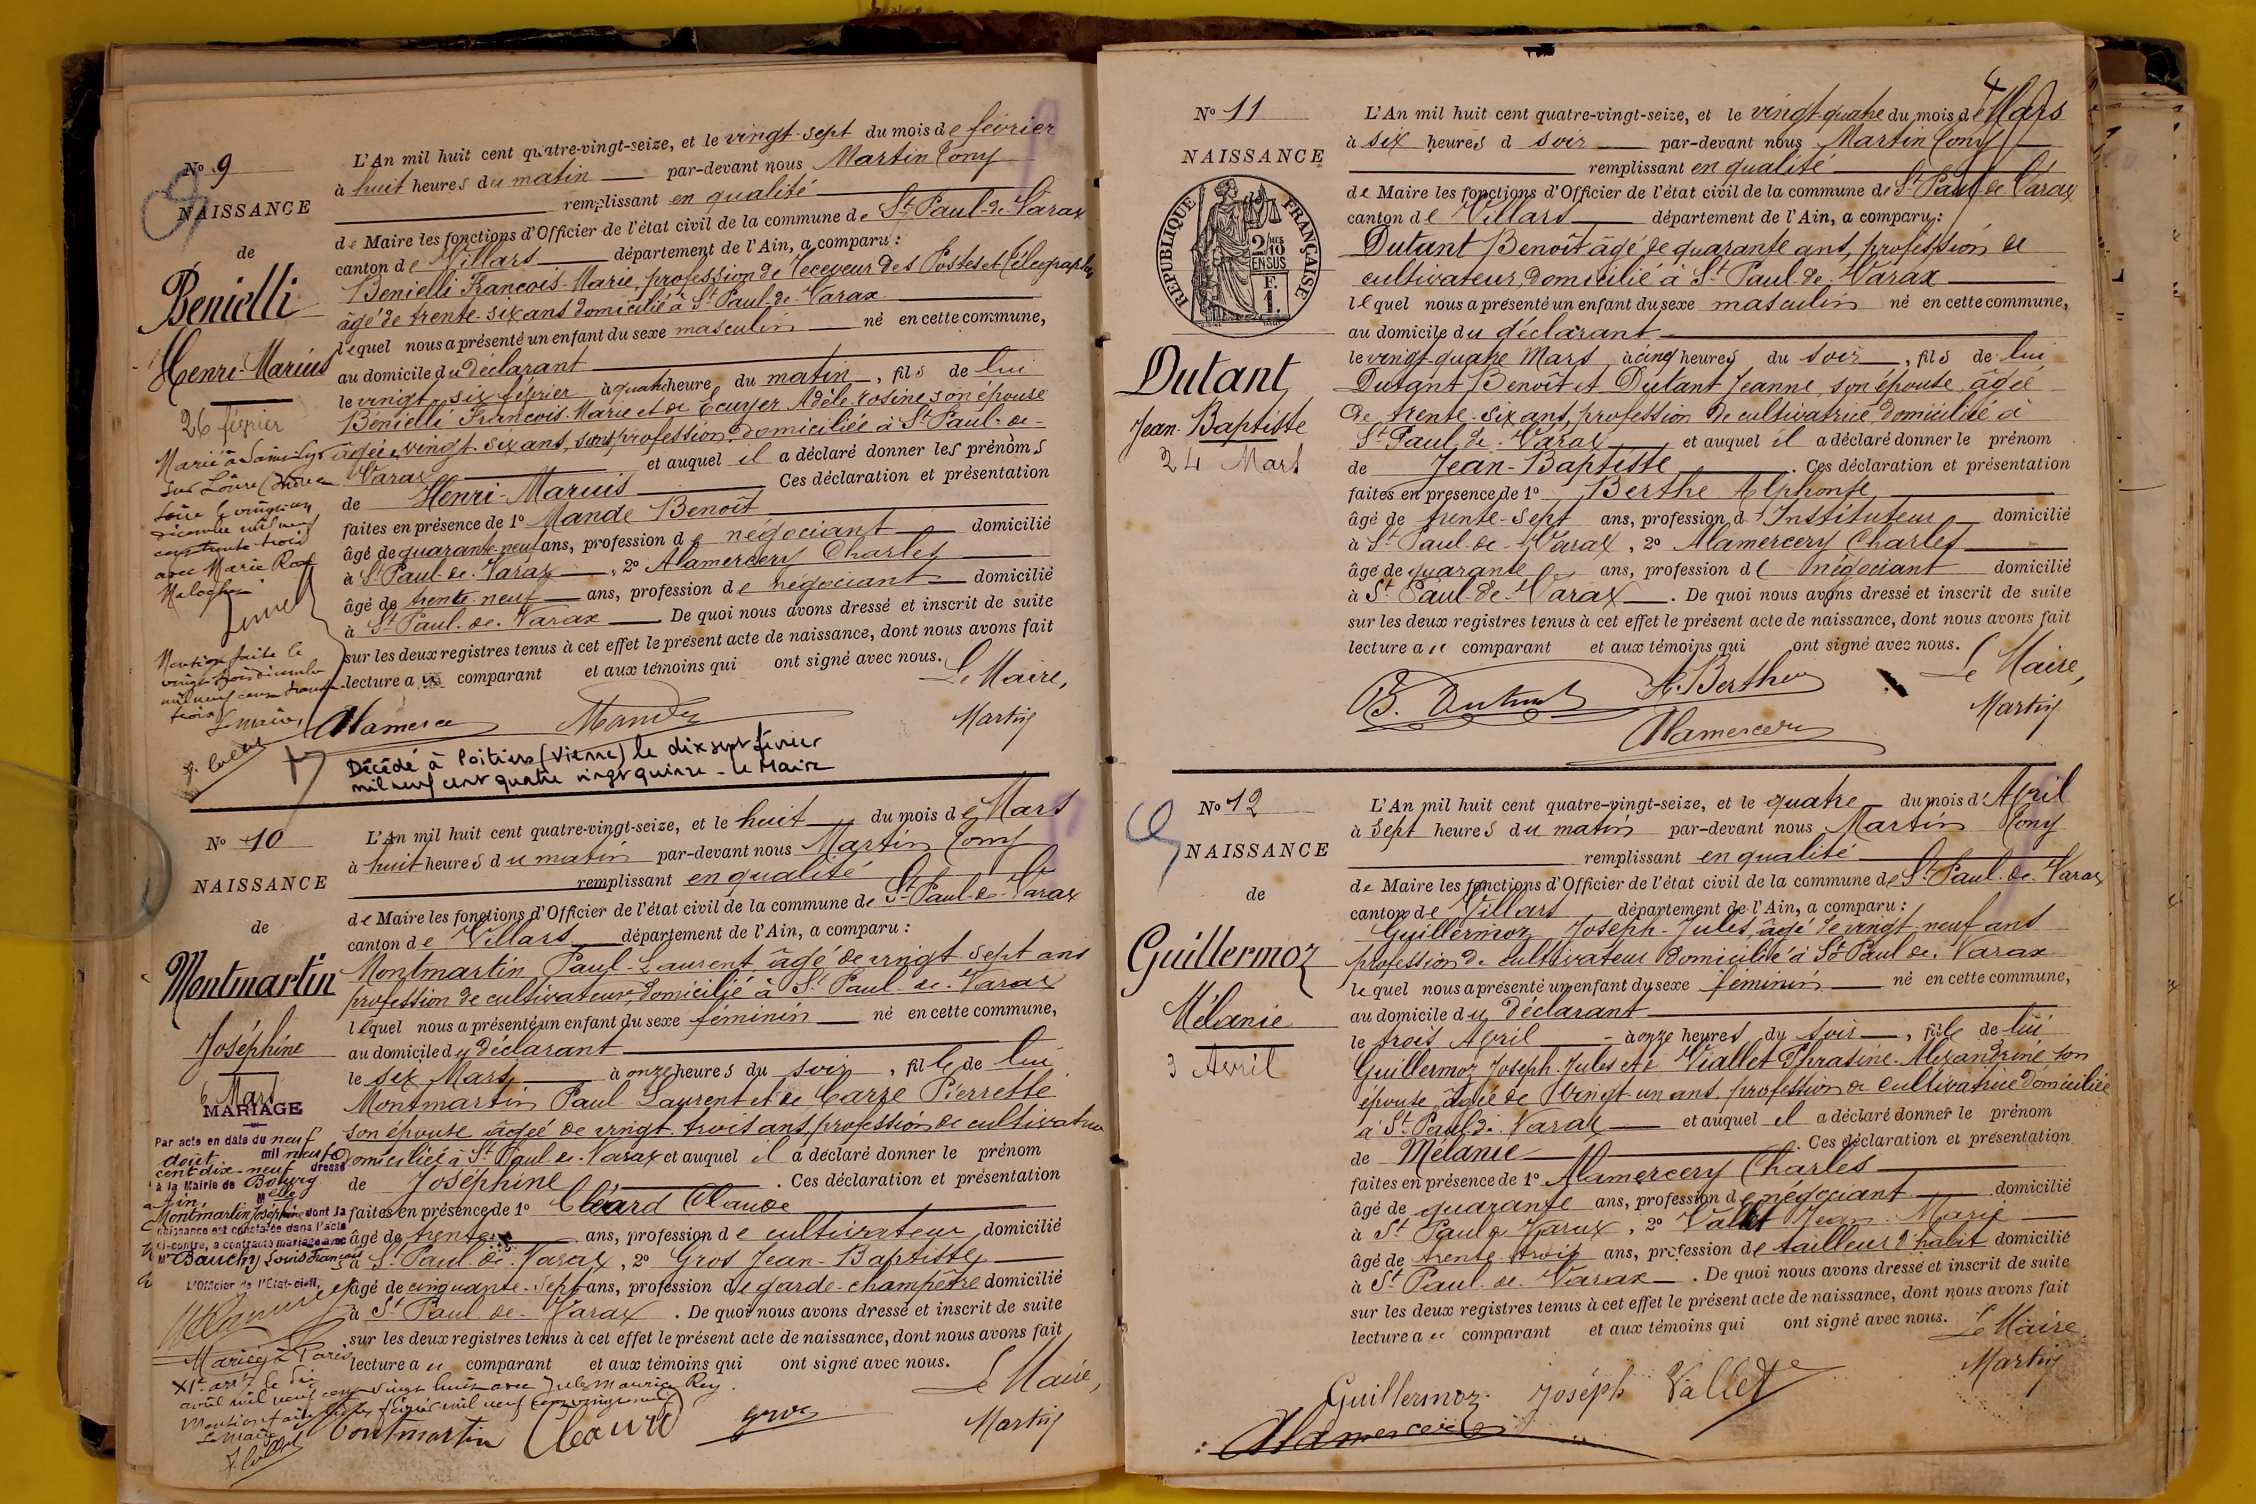 No 9
NAISSANCE
de
Benielli
Henri-Marius
26 février
L'An mil huit cent quatre-vingt-seize, et le vingt-sept du mois de février
à huit heures du matin par-devant nous Martin Tony
remplissant en qualité
de Maire les fonctions d'Officier de l'état civil de la commune de St Paul-de-Varax
canton de Villars département de l'Ain, a comparu :
Benielli François-Marie, profession de receveur des Postes et Télégraphes
âgé de trente-six ans domicilié à St Paul-de-Varax
lequel nous a présenté un enfant du sexe masculin né en cette commune,
au domicile du déclarant
le vingt-six février à quatre heure du matin, fils de lui
Bénielli François-Marie et de Ecuyer Adèle-rosine son épouse
âgée vingt-six ans, sans profession, domiciliée à St Paul-de-
Varax et auquel il a déclaré donner les prénoms
de Henri-Marius Ces déclaration et présentation
faites en présence de 1º Mande Benoît
âgé de quarante-neuf ans, profession de négociant domicilié
à St Paul-de-Varax, 2º Alamercery Charles
âgé de trente-neuf ans, profession de négociant domicilié
à St Paul-de-Varax De quoi nous avons dressé et inscrit de suite
sur les deux registres tenus à cet effet le présent acte de naissance, dont nous avons fait
lecture au comparant et aux témoins qui ont signé avec nous.
Le Maire,
Martin
Marié à
sur Loire
Loire le vingt
décembre mil neuf
cent trente-trois
avec Marie
Mention faite le
vingt-trois décembre
mil neuf cent trente-
trois
Le maire,
Décédé à Poitiers (Vienne) le dix sept février
mil neuf cent quatre vingt quinze - Le Maire
No 10
NAISSANCE
de
Montmartin
Joséphine
6 Mars
L'An mil huit cent quatre-vingt-seize, et le huit du mois de Mars
à huit heures du matin par-devant nous Martin Tony
remplissant en qualité
de Maire les fonctions d'Officier de l'état civil de la commune de St Paul-de-Varax
canton de Villars département de l'Ain, a comparu :
Montmartin Paul-Laurent âgé de vingt-sept ans
profession de cultivateur, domicilié à St Paul-de-Varax
lequel nous a présenté un enfant du sexe féminin né en cette commune,
au domicile du déclarant
le six Mars à onze heures du soir, fille de lui
Montmartin Paul Laurent et de Carre Pierrette
son épouse âgée de vingt-trois ans, profession de cultivatrice
domiciliée à St Paul-de-Varax et auquel il a déclaré donner le prénom
de Joséphine. Ces déclaration et présentation
faites en présence de 1º Cléard Claude
âgé de trente ans, profession de cultivateur domicilié
à St Paul-de-Varax, 2º Gros Jean-Baptiste
âgé de cinquante-sept ans, profession de garde-champêtre domicilié
à St Paul-de-Varax. De quoi nous avons dressé et inscrit de suite
sur les deux registres tenus à cet effet le présent acte de naissance, dont nous avons fait
lecture au comparant et aux témoins qui ont signé avec nous.
Le Maire,
Martin
Montmartin Cléard Gros
MARIAGE
Par acte en date du neuf
août mil neuf
cent dix-neuf dressé
à la Mairie de Bourg
Ain Melle
Montmartin Joséphine dont la
naissance est constatée dans l'acte
ci-contre, a contracté mariage avec
Mr Bauchy Louis François
L'Officier de l'État-civil,
Mariée à Paris
XIe arrt le six
avril mil neuf cent vingt huit avec Jules Maurice Rey.
Le maire
No 11
NAISSANCE
RÉPUBLIQUE FRANÇAISE
2/10 EN SUS
F. 1.
Dutant
Jean-Baptiste
24 Mars
4
L'An mil huit cent quatre-vingt-seize, et le vingt-quatre du mois de Mars
à six heures d soir par-devant nous Martin Tony
remplissant en qualité
de Maire les fonctions d'Officier de l'état civil de la commune de St Paul de Varax
canton de Villars département de l'Ain, a comparu :
Dutant Benoît âgé de quarante ans, profession de
cultivateur, domicilié à St Paul-de-Varax
lequel nous a présenté un enfant du sexe masculin né en cette commune,
au domicile du déclarant
le vingt-quatre Mars à cinq heures du soir, fils de lui
Dutant Benoît et Dutant Jeanne, son épouse, âgée
de trente-six ans, profession de cultivatrice, domiciliée à
St Paul-de-Varax et auquel il a déclaré donner le prénom
de Jean-Baptiste. Ces déclaration et présentation
faites en présence de 1º Berthe Alphonse
âgé de trente-sept ans, profession d'Instituteur domicilié
à St Paul-de-Varax, 2º Alamercery Charles
âgé de quarante ans, profession de négociant domicilié
à St Paul-de-Varax. De quoi nous avons dressé et inscrit de suite
sur les deux registres tenus à cet effet le présent acte de naissance, dont nous avons fait
lecture au comparant et aux témoins qui ont signé avec nous.
Le Maire,
B. Dutant A. Berthe
Martin
Alamercery
No 12
NAISSANCE
de
Guillermoz
Mélanie
3 Avril
L'An mil huit cent quatre-vingt-seize, et le quatre du mois d'Avril
à sept heures du matin par-devant nous Martin Tony
remplissant en qualité
de Maire les fonctions d'Officier de l'état civil de la commune de St Paul-de-Varax
canton de Villars département de l'Ain, a comparu :
Guillermoz Joseph-Jules, âgé de vingt-neuf ans
profession de cultivateur domicilié à St Paul de Varax
lequel nous a présenté un enfant du sexe féminin né en cette commune,
au domicile du déclarant
le trois Avril à onze heures du soir, fille de lui
Guillermoz Joseph-Jules et de Viallet Phrasine-Alexandrine son
épouse, âgée de vingt-un ans, profession de cultivatrice domiciliée
à St Paul de Varax et auquel il a déclaré donner le prénom
de Mélanie. Ces déclaration et présentation
faites en présence de 1º Alamercery Charles
âgé de quarante ans, profession de négociant domicilié
à St Paul de Varax, 2º Vallet Jean-Marie
âgé de trente-trois ans, profession de tailleur d'habit domicilié
à St Paul-de-Varax. De quoi nous avons dressé et inscrit de suite
sur les deux registres tenus à cet effet le présent acte de naissance, dont nous avons fait
lecture au comparant et aux témoins qui ont signé avec nous.
Le Maire,
Martin
Guillermoz Joséph Vallet
Alamercery